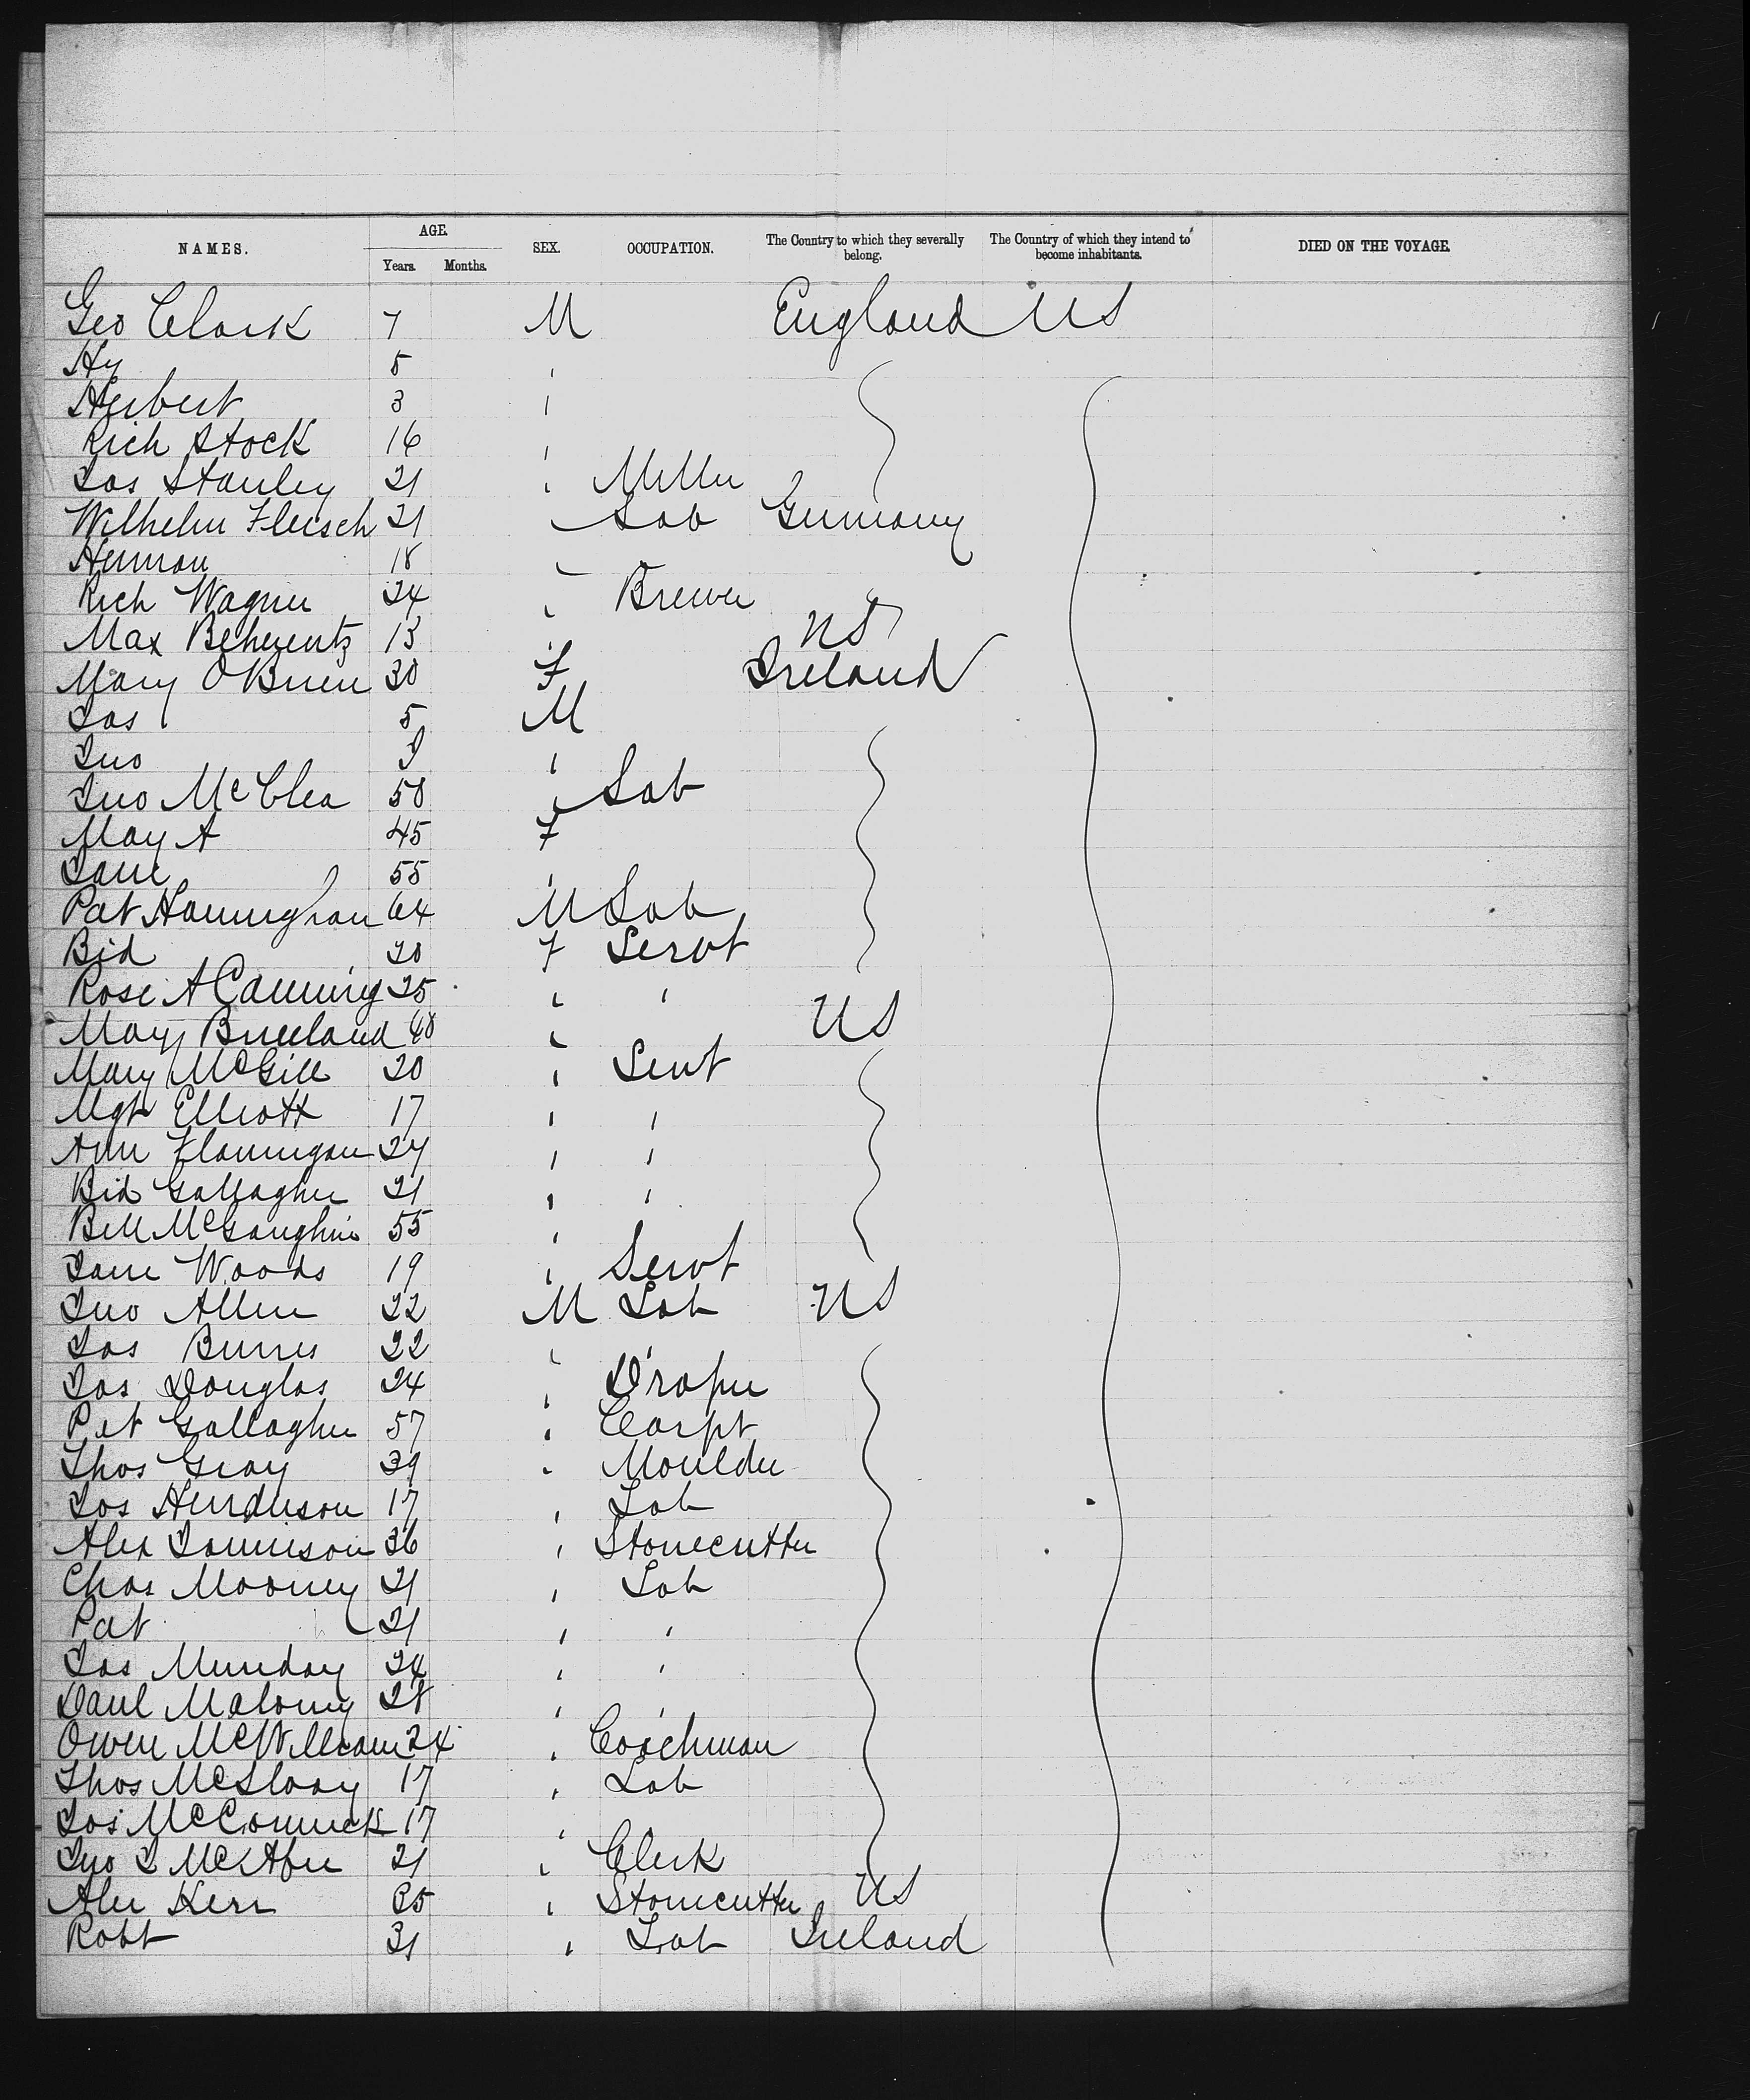 NAMES. AGE. SEX. OCCUPATION. The Country to which they severally belong. The Country of which they intend to become inhabitants. DIED ON THE VOYAGE.
Years. Months.
Geo Clark 7 M England US
Hy 5 "
Herbert 3 "
Rich Stock 16 "
Jas Stanley 21 " Miller
Wilhelm Fleisch 21 " Lab Germany
Herman 18 "
Rich Wagner 24 " Brewer
Max Beherentz 13 " US
Mary O'Brien 30 F Ireland
Jas 5 M
Jno "
Jno McClea 50 " Lab
May A 45 F
Jane 55 "
Pat Hannighan 64 M Lab
Bid 20 F Servt
Rose A Canning 25 " "
Mary Breeland 40 " US
Mary McGill 20 " Servt
Mgt Elliott 17 " "
Ann Flannigan 24 " "
Bid Gallagher 21 " "
Bell McGaughin 55 "
Jane Woods 19 " Servt
Jno Allen 22 M Lab US
Jas Burns 22 " "
Jas Douglas 24 " Draper
Pat Gallagher 57 " Carpt
Thos Gray 39 " Moulder
Jos Henderson 17 " Lab
Alex Jamieson 36 " Stonecutter
Chas Mooney 21 " Lab
Pat 21 " "
Jas Munday 24 " "
Danl Maloney 28 " "
Owen McWilliam 24 " Coachman
Thos McSloay 17 " Lab
Jos McCormick 17 "
Jno J McAfee 21 " Clerk
Alex Kerr 35 " Stonecutter US
Robt 31 " Lab Ireland